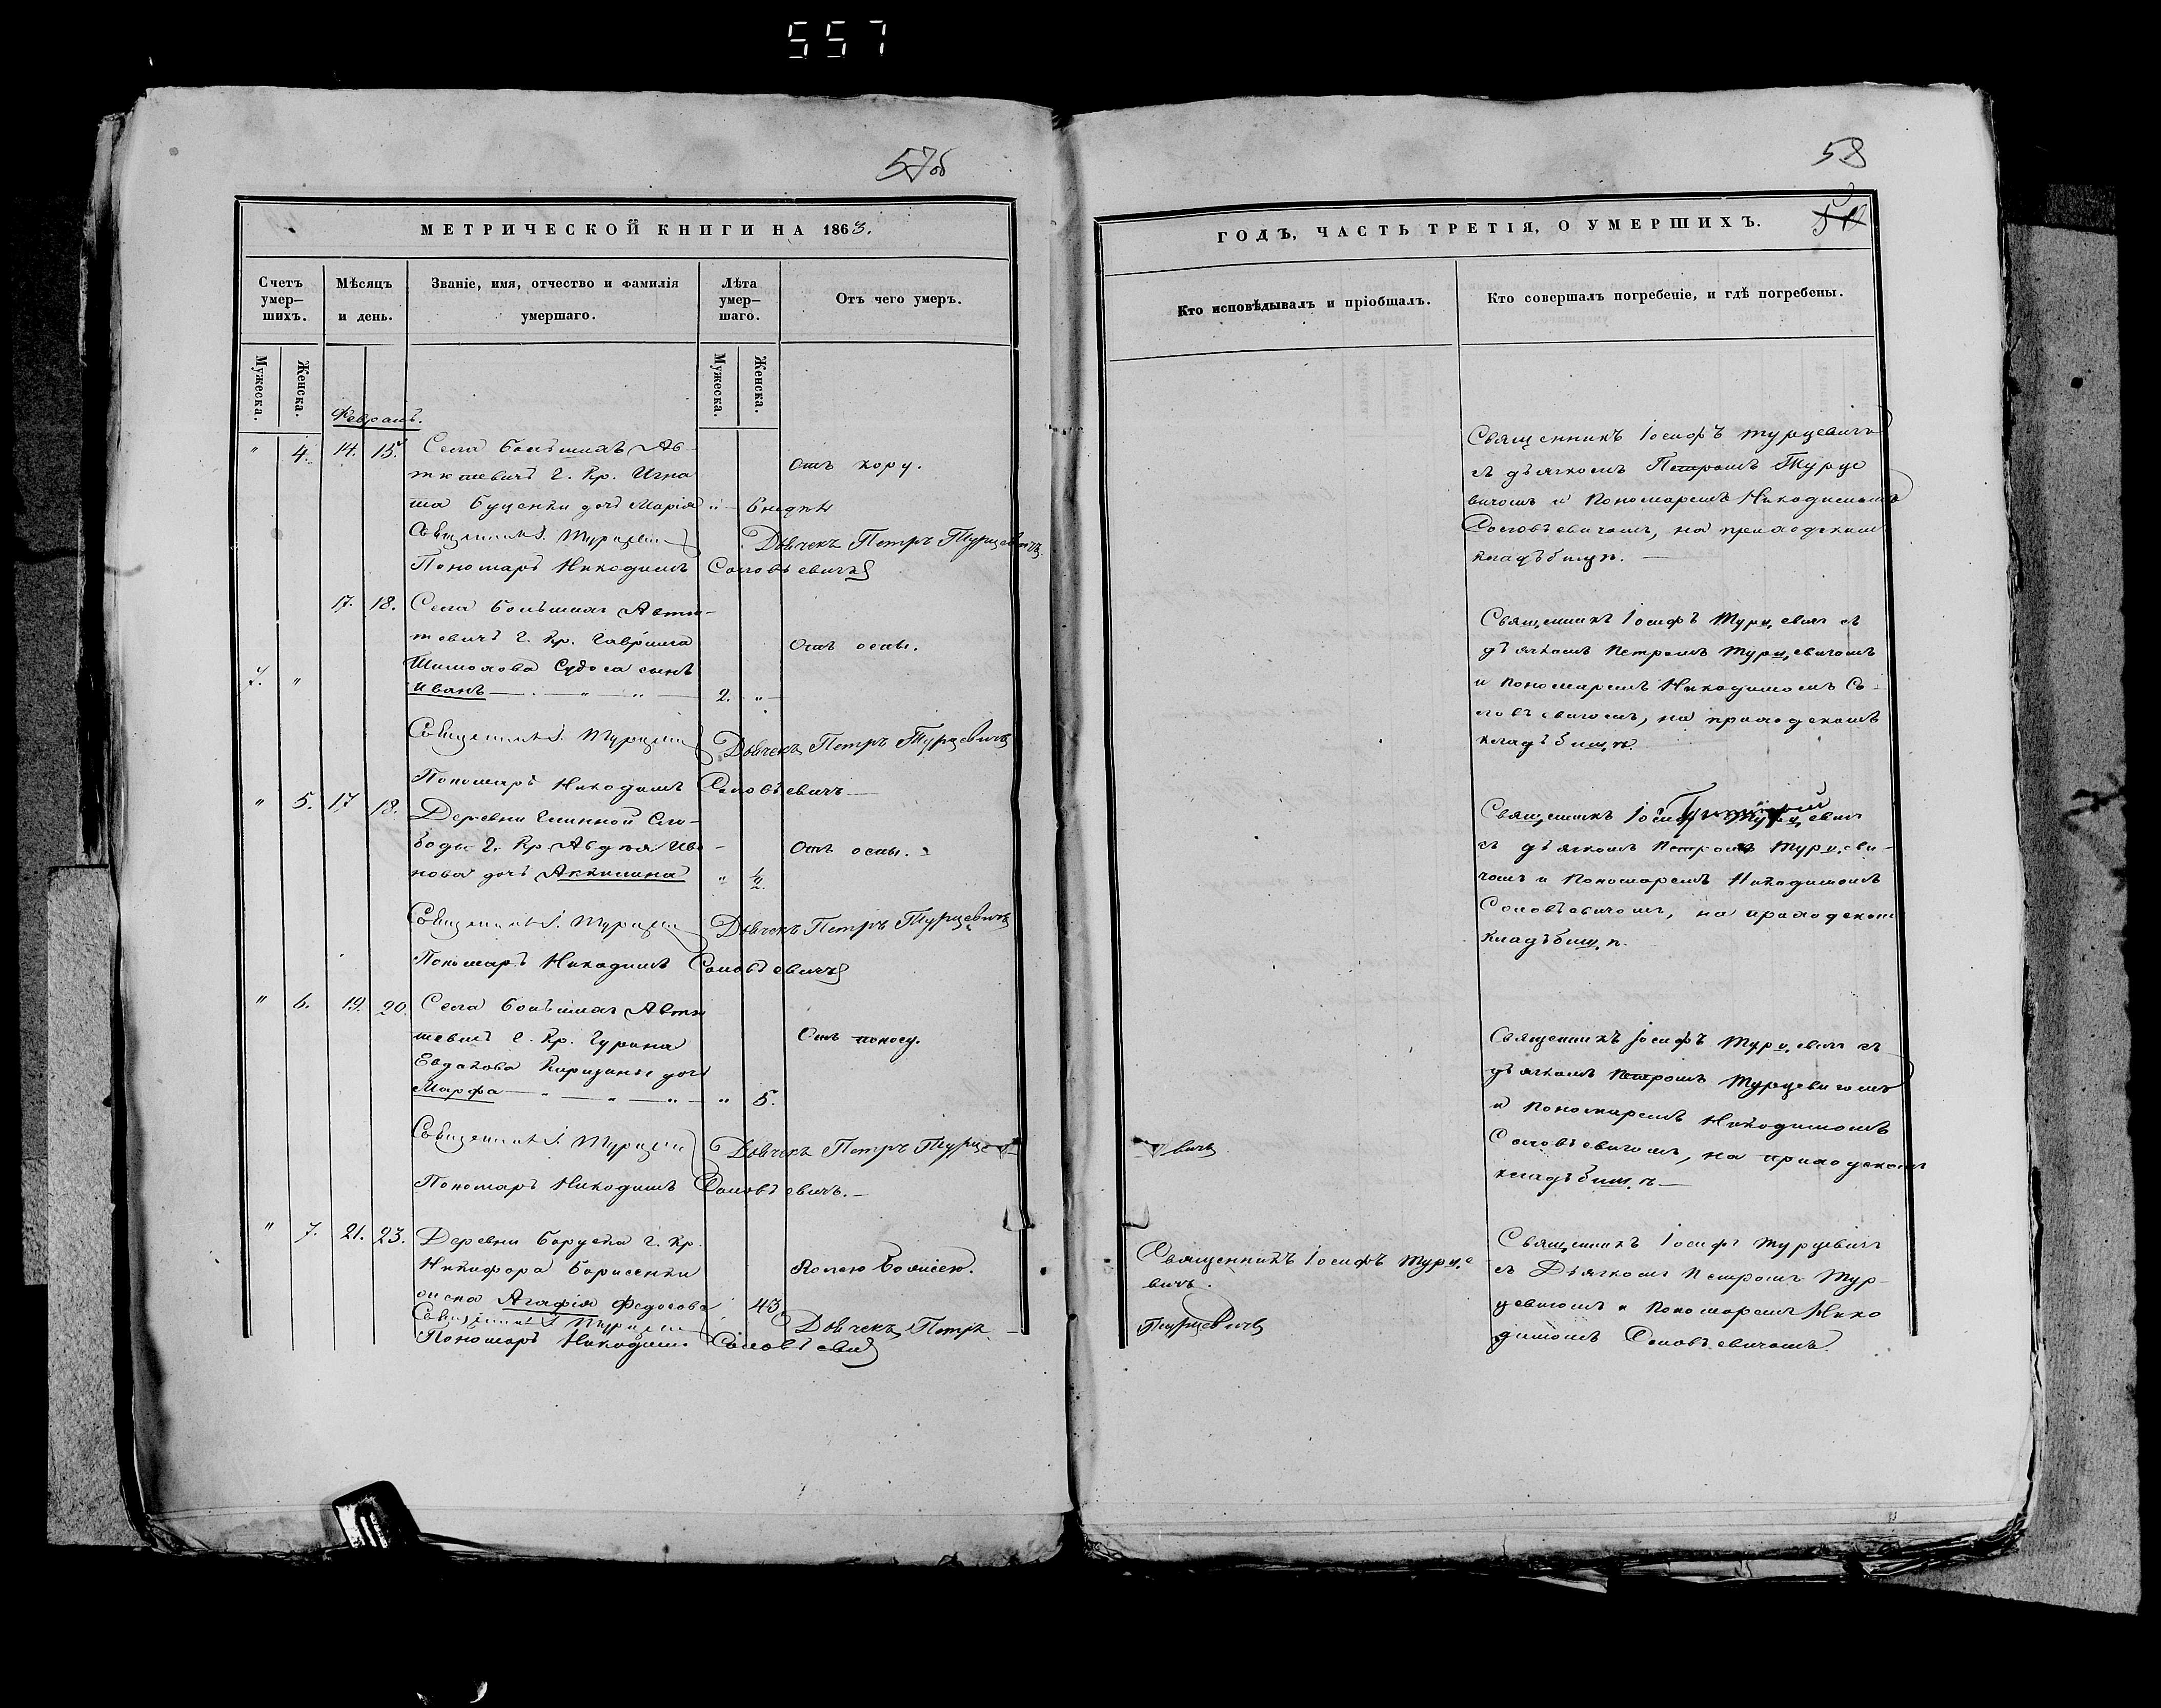 557
57об
МЕТРИЧЕСКОЙ КНИГИ НА 1863.
Счетъ умер-шихъ.
Мѣсяцъ и день.
Званіе, имя, отчество и фамилія умершаго.
Лѣта умер-шаго.
Отъ чего умеръ.
Мужеска.
Женска.
Мужеска.
Женска.
Февраль.
" 4. 14. 15. Села Большихъ Ав-
тютевичъ Г. Кр. Игна Отъ кору.
та Буценки дочь Марія " 6 недѣли
Священникъ І. Турцевичъ Дьячекъ Петръ Турцевичъ
Пономарь Никодимъ Соловьевичъ
17. 18. Села Большихъ Автю-
тевичъ Г. Кр. Гавріила Отъ оспы.
сынъ
7. " Иванъ 2. "
Священникъ І. Турцевичъ Дьячекъ Петръ Турцевичъ
Пономарь Никодимъ Соловьевичъ
" 5. 17 18. Деревни Глинной Сло-
боды Г. Кр. Авдѣя Ива- Отъ оспы.
нова дочь Акилина " ½.
Священникъ І. Турцевичъ Дьячекъ Петръ Турцевичъ
Пономарь Никодимъ Соловьевичъ
" 6. 19. 20. Села Большихъ Автю
тевичъ Г. Кр. Гурина Отъ поносу.
Евдакова дочь
Марфа " 5.
Священникъ І. Турцевичъ Дьячекъ Петръ Турце
Пономарь Никодимъ Соловьевичъ.
" 7. 21. 23. Деревни Боруска Г. Кр.
Никифора Борисенки
жена Агафія Федосова 43.
Священникъ І. Турцевичъ Дьячекъ Петръ
Пономарь Никодимъ Соловьевичъ
58
ГОДЪ, ЧАСТЬ ТРЕТІЯ, О УМЕРШИХЪ.
Кто исповѣдывалъ и пріобщалъ.
Кто совершалъ погребеніе, и гдѣ погребены.
Священникъ Іосифъ Турцевичъ
съ дьячкомъ Петромъ Турце
вичомъ и Пономаремъ Никодимомъ
Соловьевичомъ, на приходскомъ
кладъбищѣ.
Священникъ Іосифъ Турцевичъ съ
дьячкомъ Петромъ Турцевичомъ
и Пономаремъ Никодимомъ Со-
ловьевичомъ, на приходскомъ
кладъбищѣ.
Священникъ Іосифъ Турцевичъ
съ дьячкомъ Петромъ Турцеви-
чомъ и Пономаремъ Никодимомъ
Соловьевичомъ, на приходскомъ
кладъбищѣ.
Священникъ Іосифъ Турцевичъ съ
дьячкомъ Петромъ Турцевичомъ
и Пономаремъ Никодимомъ
вичъ Соловьевичомъ, на приходскомъ
кладъбищѣ.
Священникъ Іосифъ Турце
вичъ.
Турцевичъ
Священникъ Іосифъ Турцевичъ
съ Дьячкомъ Петромъ Тур-
цевичомъ и Пономаремъ Нико
димомъ Соловьевичомъ.